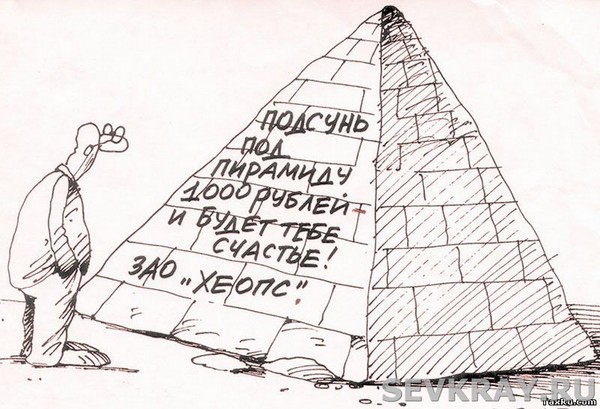 ПОДСУНЬ
ПОД
ПИРАМИДУ
1000 РУБЛЕЙ -
И БУДЕТ ТЕБЕ
СЧАСТЬЕ!
ЗАО „ХЕОПС"
SEVKRAY.RU
raxku.com